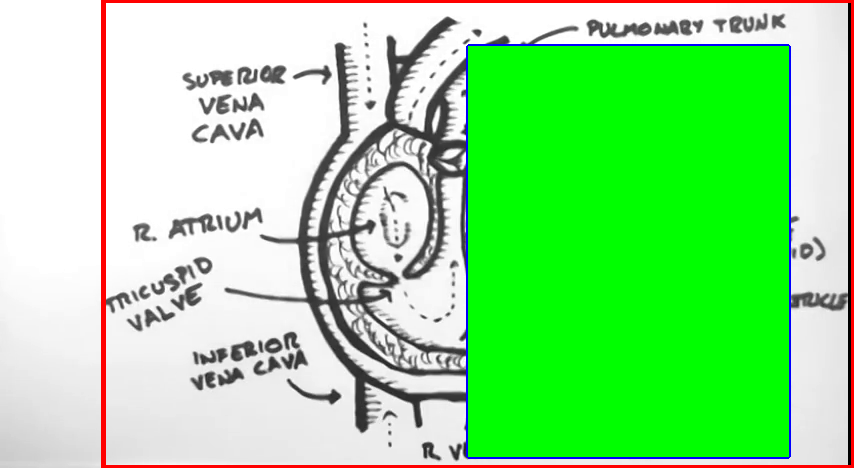 PULMONARY TRUNK
SUPERIOR
VENA
CAVA
R. ATRIUM
TRICUSPID
VALVE
INFERIOR
VENA CAVA
R.